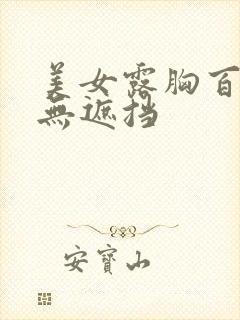 美女露胸百
無遮挡
安寶山